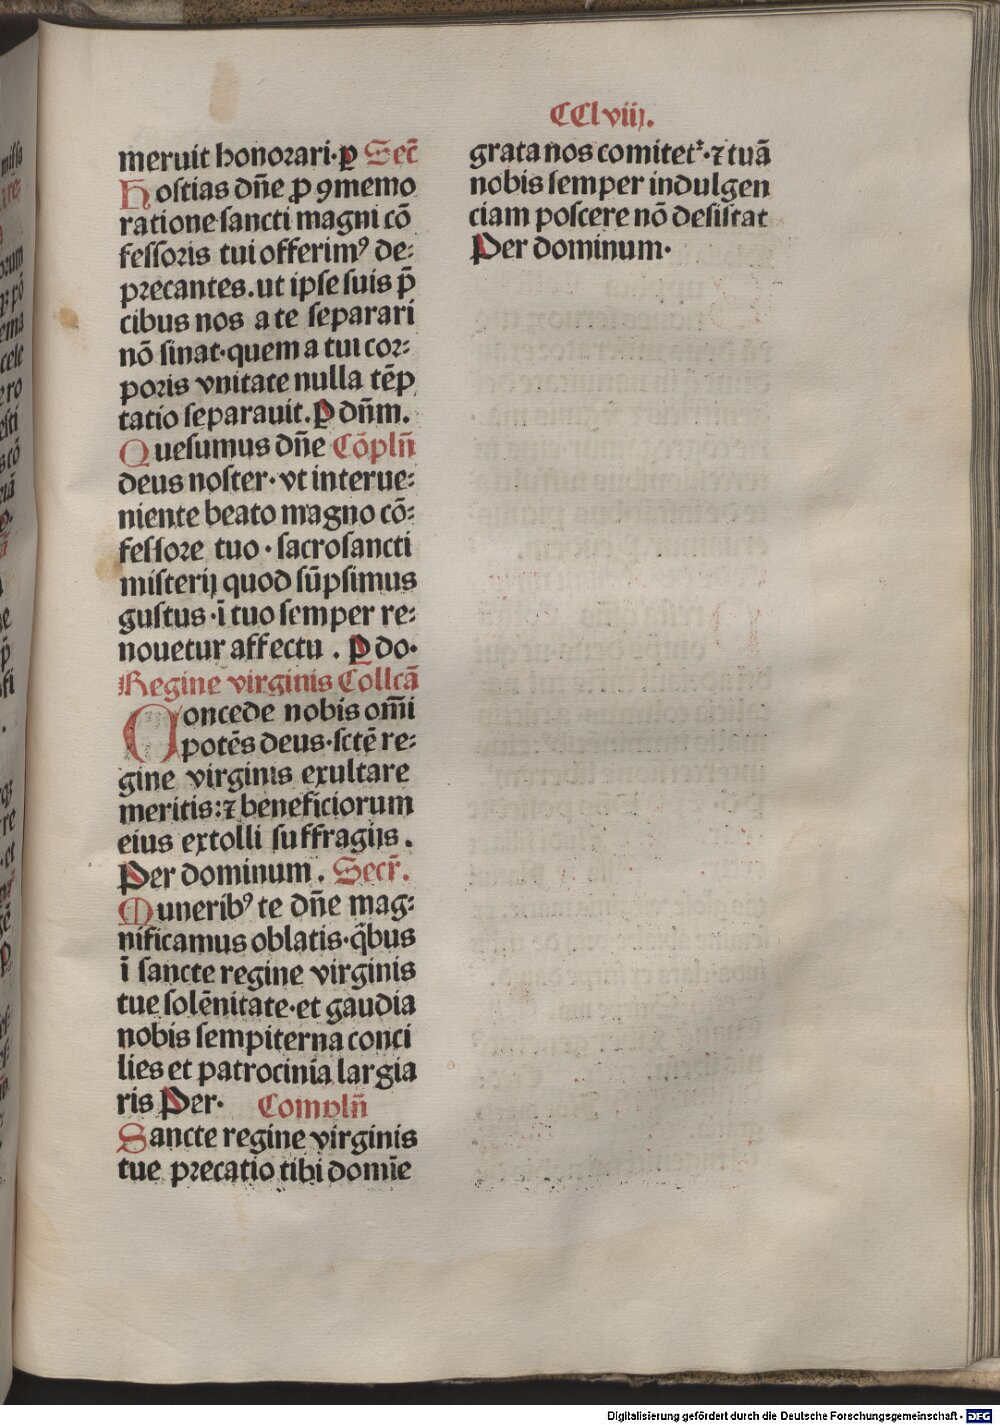 CClviij.
meruit honorari·p Sec̄
Hostias dñe p̱ ꝯmemo
ratione sancti magni cō
fessoris tui offerimꝰ de-
precantes.ut ipse suis p̄
cibus nos a te separari
nō sinat·quem a tui cor-
poris vnitate nulla tēp
tatio separauit.P dñm.
Quesumus dñe Cōplñ
deus noster·vt interue-
niente beato magno cō-
fessore tuo·sacrosancti
misterij quod sūpsimus
gustus·ī tuo semper re-
nouetur affectu. P do·
Regine virginis Collcā
Concede nobis om̄i
potēs deus·sctē re-
gine virginis exultare
meritis:⁊ beneficiorum
eius extolli suffragijs.
Per dominum. Secr̄.
Muneribꝰ te dñe mag-
nificamus oblatis·q̄bus
ī sancte regine virginis
tue solēnitate·et gaudia
nobis sempiterna conci
lies et patrocinia largia
ris Per· Complñ
Sancte regine virginis
tue precatio tibi domīe
grata nos comitetᷣ·⁊ tuā
nobis semper indulgen
ciam poscere nō desistat
Per dominum·
Digitalisierung gefördert durch die Deutsche Forschungsgemeinschaft - DFG